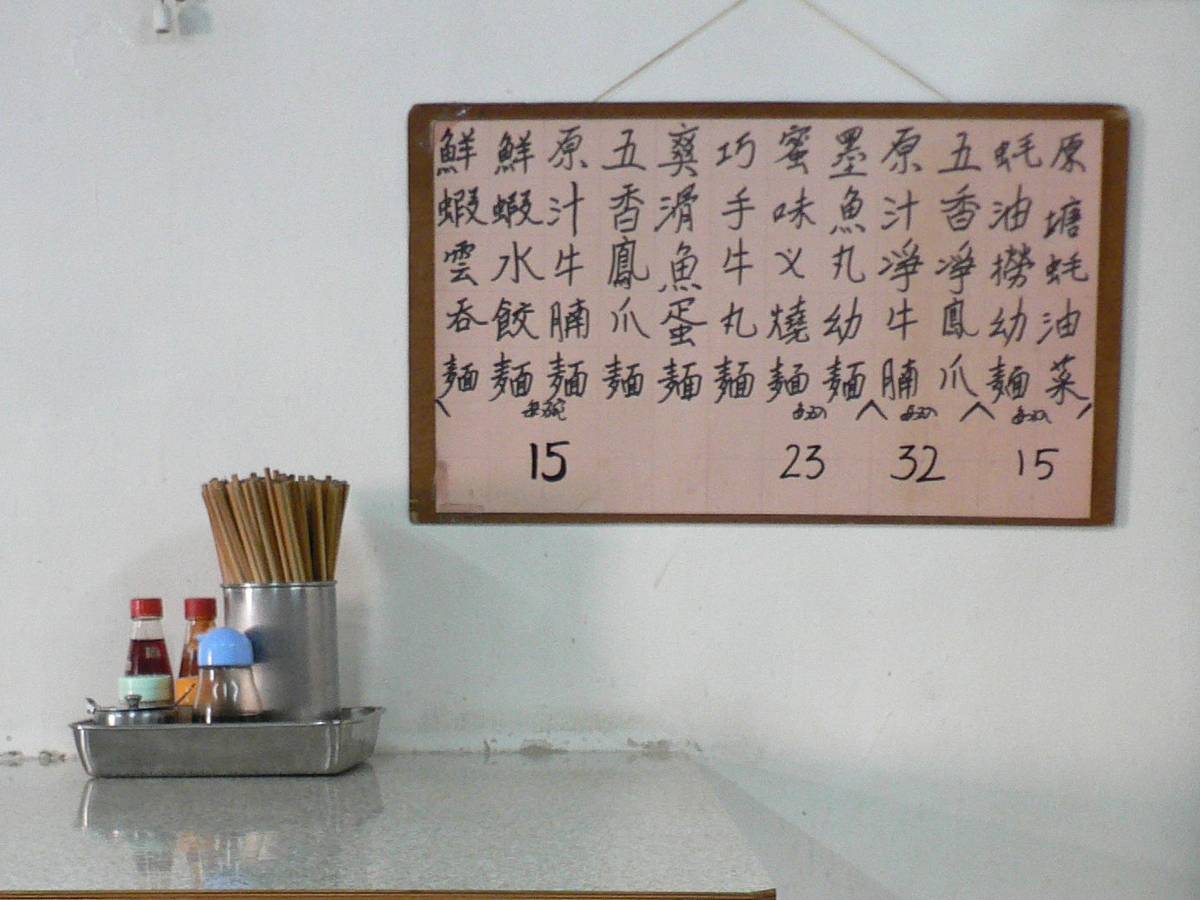 原塘蚝油菜
蚝油撈幼麵
五香凈鳳爪
原汁凈牛腩
墨魚丸幼麵
蜜味乂燒麵
巧手牛丸麵
爽滑魚蛋麵
五香鳳爪麵
原汁牛腩麵
鮮蝦水餃麵
鮮蝦雲吞麵
15
32
23
每碗
15